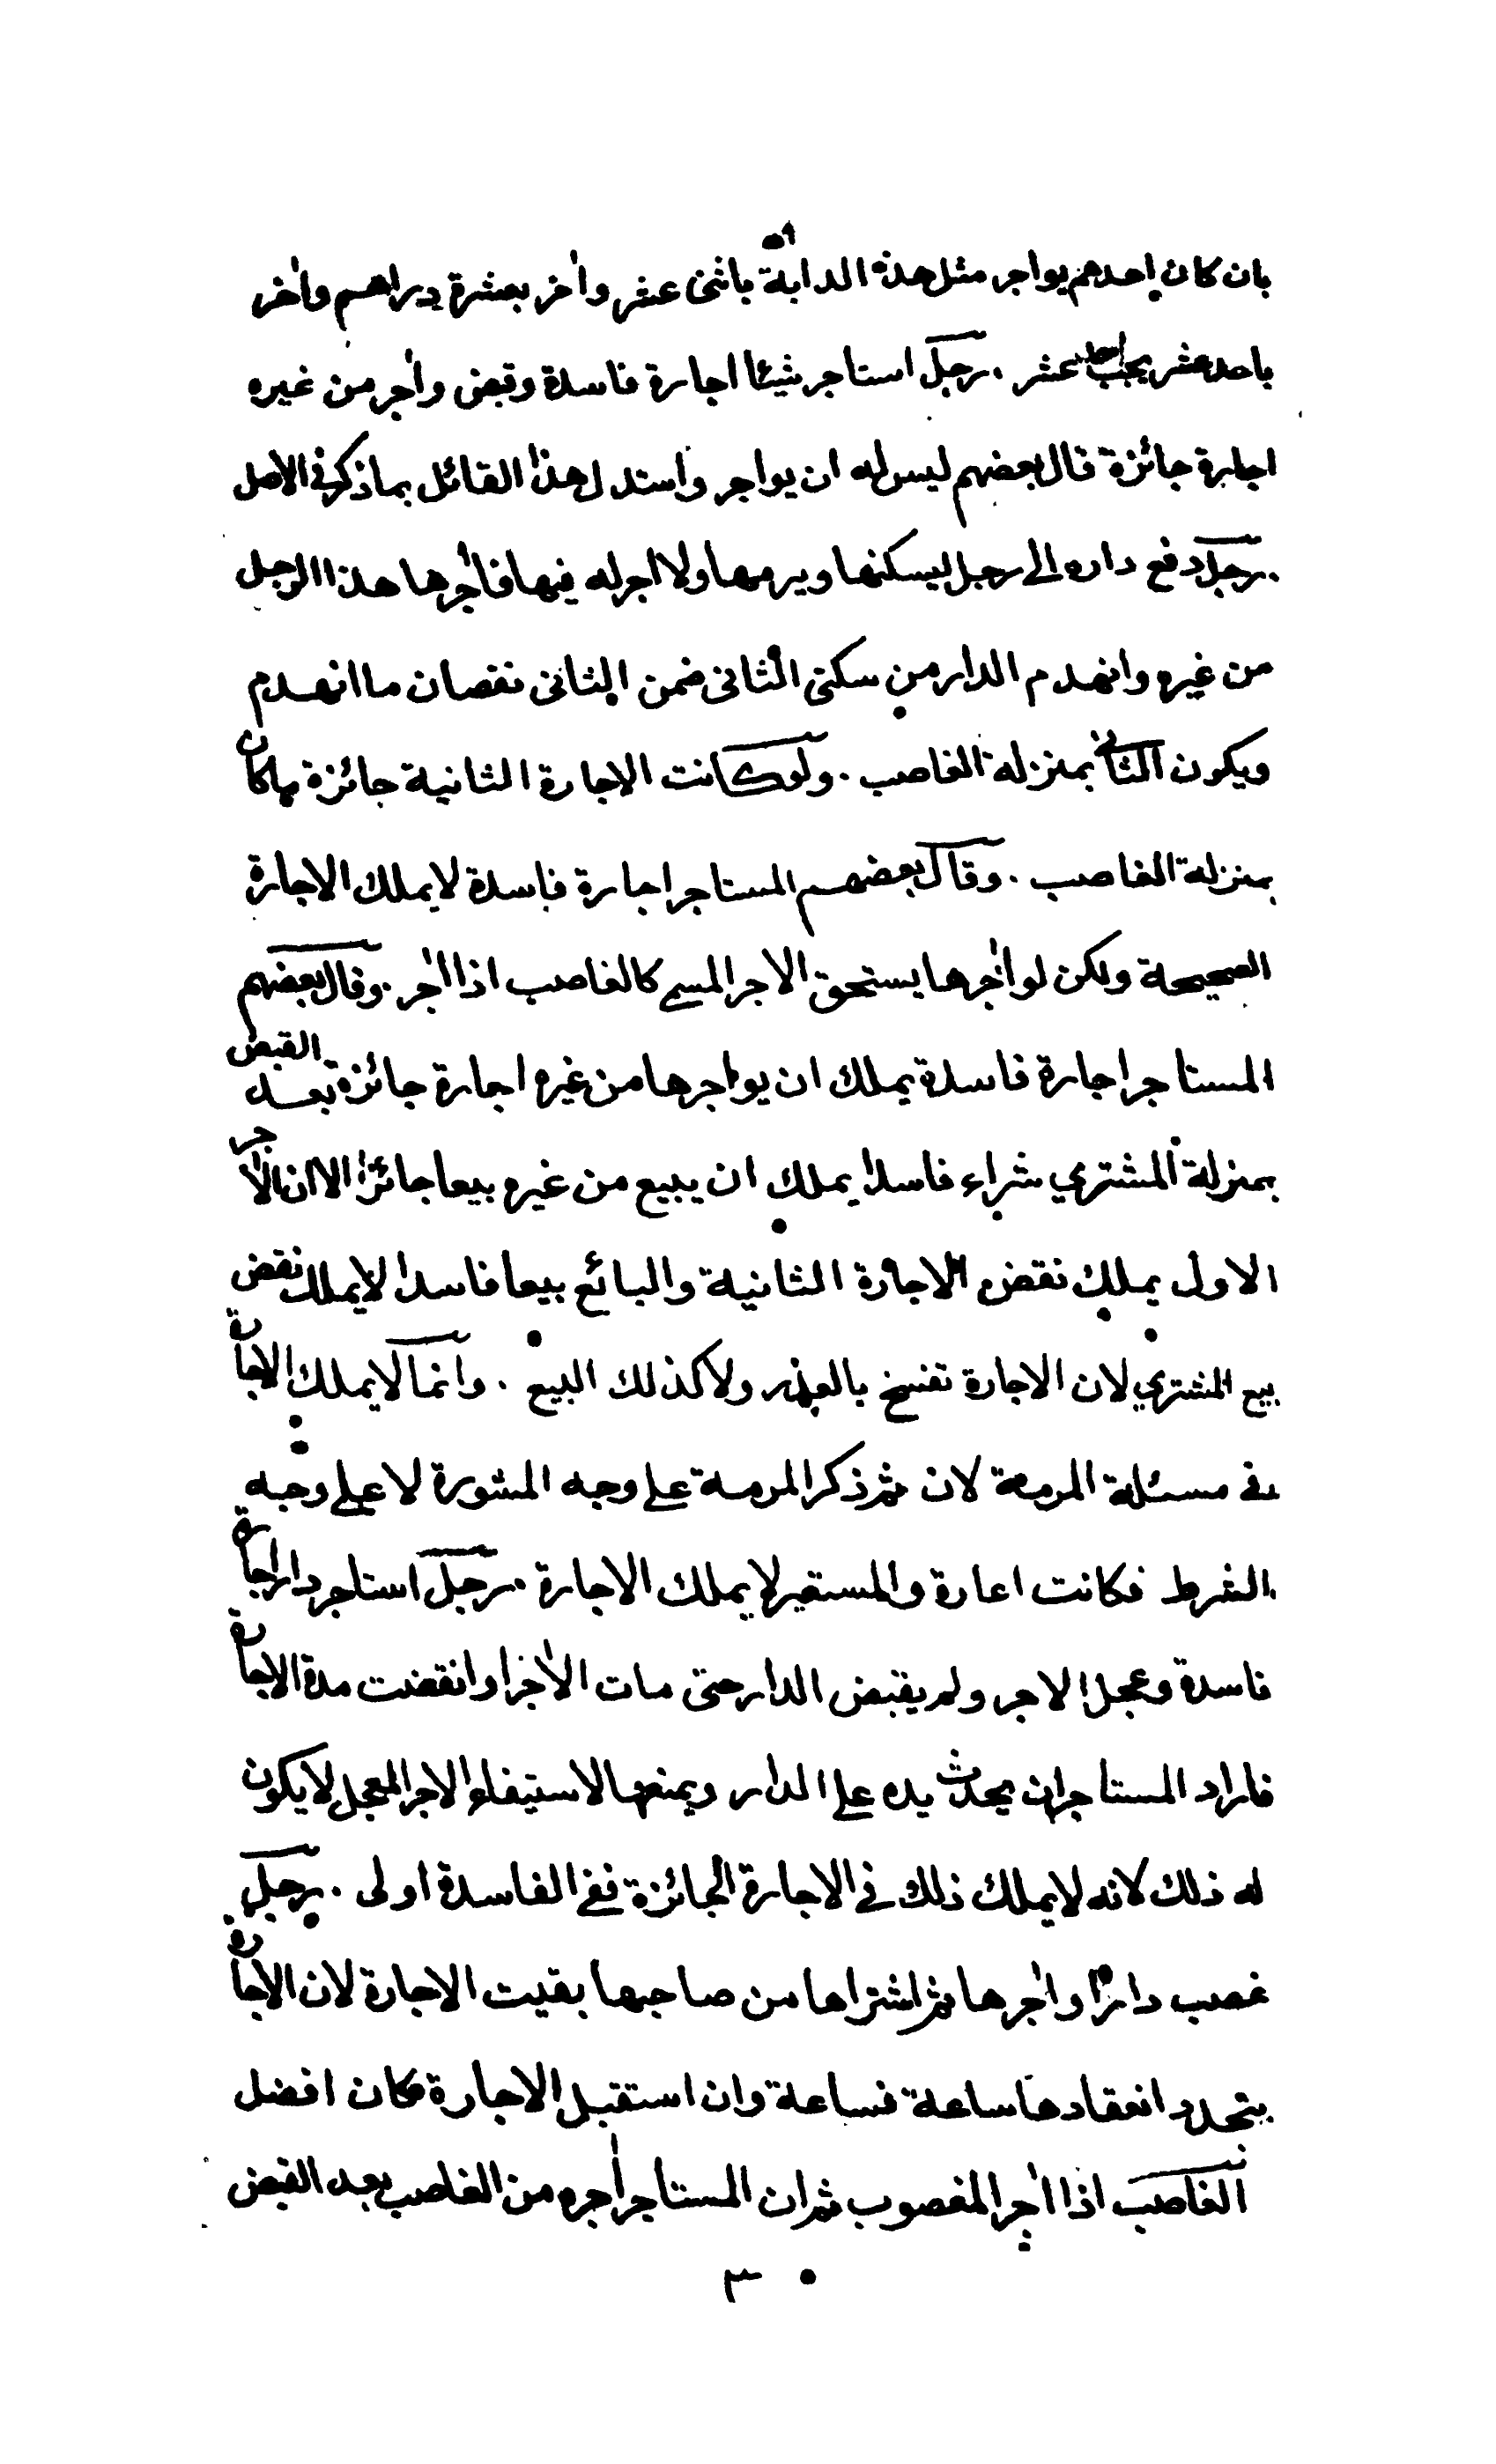 بان كان احدهم يواجر مثل هذه الدابة باثنى عشر واٰخر بعشرة دراهم واٰخر
باحد عشر يجب احد عشر . رجل استاجر شيئا اجارة فاسدة وقبض واٰجر من غيره
اجارة جائزة قال بعضهم ليس له ان يواجر واستدل هذا القائل بما ذكر فى الاصل
رجل دفع داره الى رجل ليسكنها ويرمها ولا اجر له فيها فاٰجرها هذا الرجل
من غيره وانهدم الدار من سكنى الثانى ضمن الثانى نقصان ما انهدم
ويكون الثانى بمنزلة الغاصب . ولو كانت الاجارة الثانية جائزة ما كان
بمنزلة الغاصب . وقال بعضهم المستاجر اجارة فاسدة لا يملك الاجارة
الصحيحة ولكن لو اٰجرها يستحق الاجر المسمى كالغاصب اذا اٰجر . وقال بعضهم
المستاجر اجارة فاسدة يملك ان يواجرها من غيره اجارة جائزة بعد القبض
بمنزلة المشتري شراء فاسدا يملك ان يبيع من غيره بيعا جائزا الا ان الاٰجر
الاول يملك نقض الاجارة الثانية والبائع بيعا فاسدا لا يملك نقض
بيع المشتري لان الاجارة تفسخ بالعذر ولا كذلك البيع . وانما لا يملك الاجارة
فى مسئلة المرمة لان ثم ذكر المرمة على وجه المشورة لا على وجه
الشرط فكانت اعارة والمستعير لا يملك الاجارة . رجل استاجر دارا اجارة
فاسدة وعجل الاجر ولم يقبض الدار حتى مات الاٰجر او انقضت مدة الاجارة
فاراد المستاجر ان يحدث يده على الدار ويمنعها لاستيفاء الاجر المعجل لا يكون
له ذلك لانه لا يملك ذلك فى الاجارة الجائزة ففى الفاسدة اولى . رجل
غصب دارًا واٰجرها ثم اشتراها من صاحبها بقيت الاجارة لان الاجارة
يتجدد انعقادها ساعة فساعة وان استقبل الاجارة كان افضل
الغاصب اذا اٰجر المغصوب ثم ان المستاجر اٰجره من الغاصب بعد القبض
٣